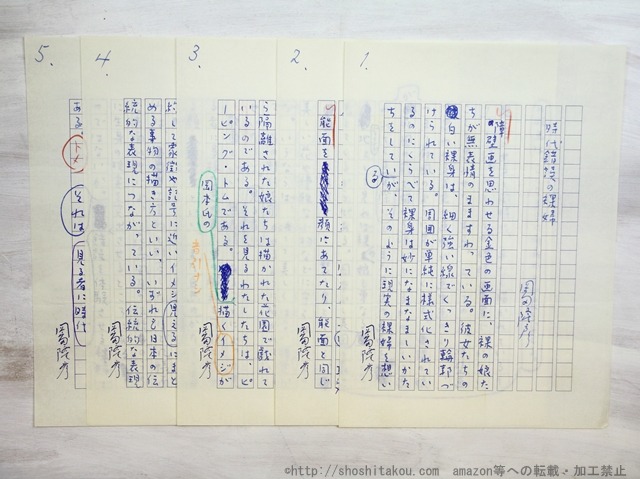 1.
時代錯誤の裸婦
障壁画を思わせる金色の画面に、裸の娘た
ちが無表情のまますわっている。彼女たちの
白い裸身は、細く強い線でくっきり輪郭づ
けられている。周囲が単純に様式化されてい
るのにくらべて裸身は妙になまなましいかた
ちをしているが、そのように現実の裸婦を想い
2.
能面を顔にあてたり、能面と同じ
3.
ら隔離された娘たちは描かれた花園で戯れて
いるのである。それを見るわたしたちは、ピ
ーピング・トムである。描くイメジが
岡本氏の
4.
める事物の描き方といい、いずれも日本の伝
統的な表現につながっている。伝統的な表現
5.
ある。それは見る者に時代
©http://shoshitakou.com amazon等への転載・加工禁止